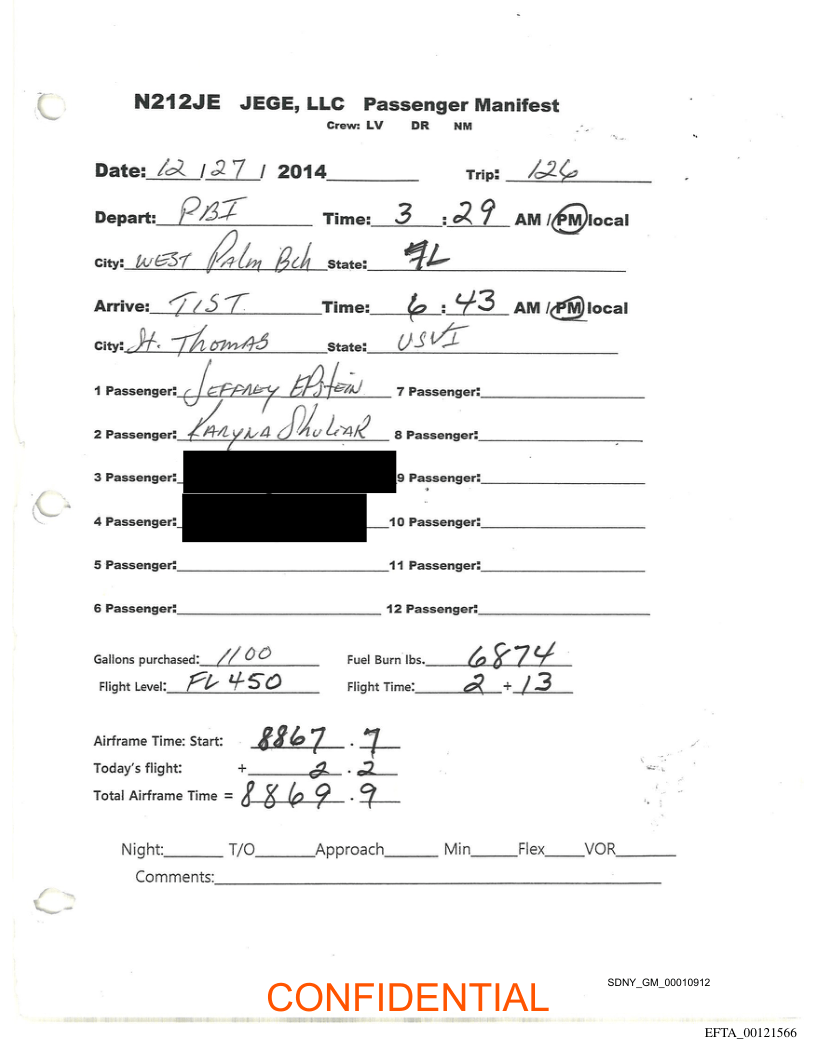 N212JE JEGE, LLC Passenger Manifest
Crew: LV DR NM
Date: 12 / 27 / 2014 Trip: 126
Depart: PBI Time: 3 : 29 AM / PM local
City: WEST Palm Bch State: FL
Arrive: TIST Time: 6 : 43 AM / PM local
City: St. Thomas State: USVI
1 Passenger: JEFFREY EPStEIN 7 Passenger:
2 Passenger: KARYNA ShuLIAR 8 Passenger:
3 Passenger: 9 Passenger:
4 Passenger: 10 Passenger:
5 Passenger: 11 Passenger:
6 Passenger: 12 Passenger:
Gallons purchased: 1100 Fuel Burn lbs. 6874
Flight Level: FL 450 Flight Time: 2 + 13
Airframe Time: Start: 8867 . 7
Today's flight: + 2 . 2
Total Airframe Time = 8869 . 9
Night: T/O Approach Min Flex VOR
Comments:
SDNY_GM_00010912
CONFIDENTIAL
EFTA_00121566